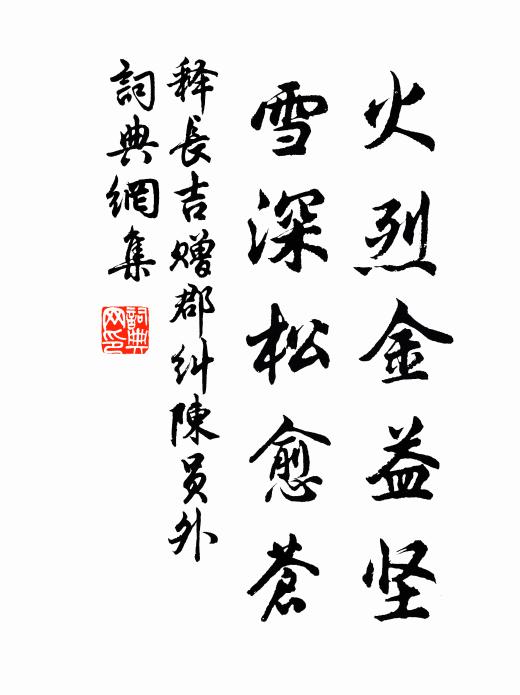 火烈金益坚
雪深松愈蒼
释長吉赠郡糾陳員外
詞典網集
詞典网印